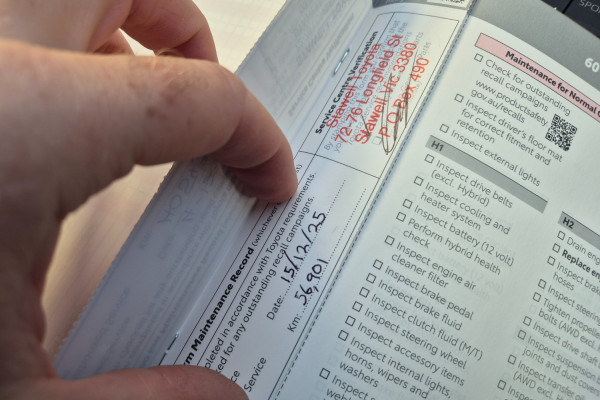 Service Centre Verification
Stawell Toyota
72-76 Longfield St
Stawell Vic 3380
P.O Box 490
Maintenance Record
in accordance with Toyota requirements
for any outstanding recall campaigns.
Date: 15/12/25
Km: 56,901
Service
60
Maintenance for Normal
Check for outstanding
recall campaigns
www.productsafety.
gov.au/recalls
Inspect driver's floor mat
for correct fitment and
retention
Inspect external lights
H1
Inspect drive belts
(excl. Hybrid)
Inspect cooling and
heater system
Inspect battery (12 volt)
Perform hybrid health
check
Inspect engine air
cleaner filter
Inspect brake pedal
Inspect brake fluid
Inspect clutch fluid (M/T)
Inspect steering wheel
Inspect accessory items
Inspect internal lights,
horns, wipers and
washers
Inspect
H2
Drain
Replace
Inspect
hoses
Inspect steering
Tighten
bolts (AWD
Inspect drive shaft
Inspect suspension
joints and dust
(AWD
Inspect